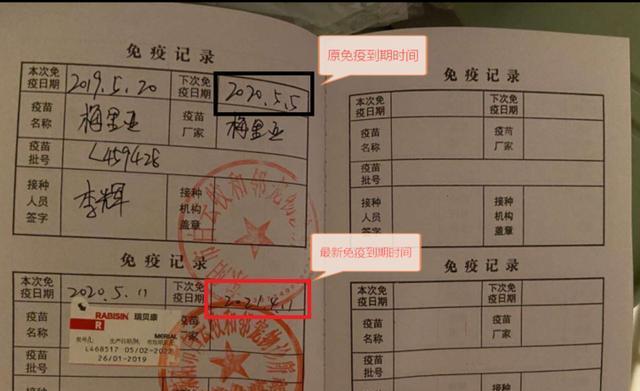 免疫记录
本次免疫日期 2019.5.20 下次免疫日期 2020.5.5
疫苗名称 梅里亚 疫苗厂家 梅里亚
疫苗批号 L459428
接种人员签字 李辉 接种机构盖章
原免疫到期时间
免疫记录
本次免疫日期 下次免疫日期
疫苗名称 疫苗厂家
疫苗批号
接种人员签字 接种机构盖章
最新免疫到期时间
免疫记录
本次免疫日期 2020.5.11 下次免疫日期
RABISIN 瑞贝康
R
MERIAL
L468517 05/02-2022
26/01-2019
免疫记录
本次免疫日期 下次免疫日期
疫苗名称 疫苗厂家
疫苗批号
接种人员签字 接种机构盖章